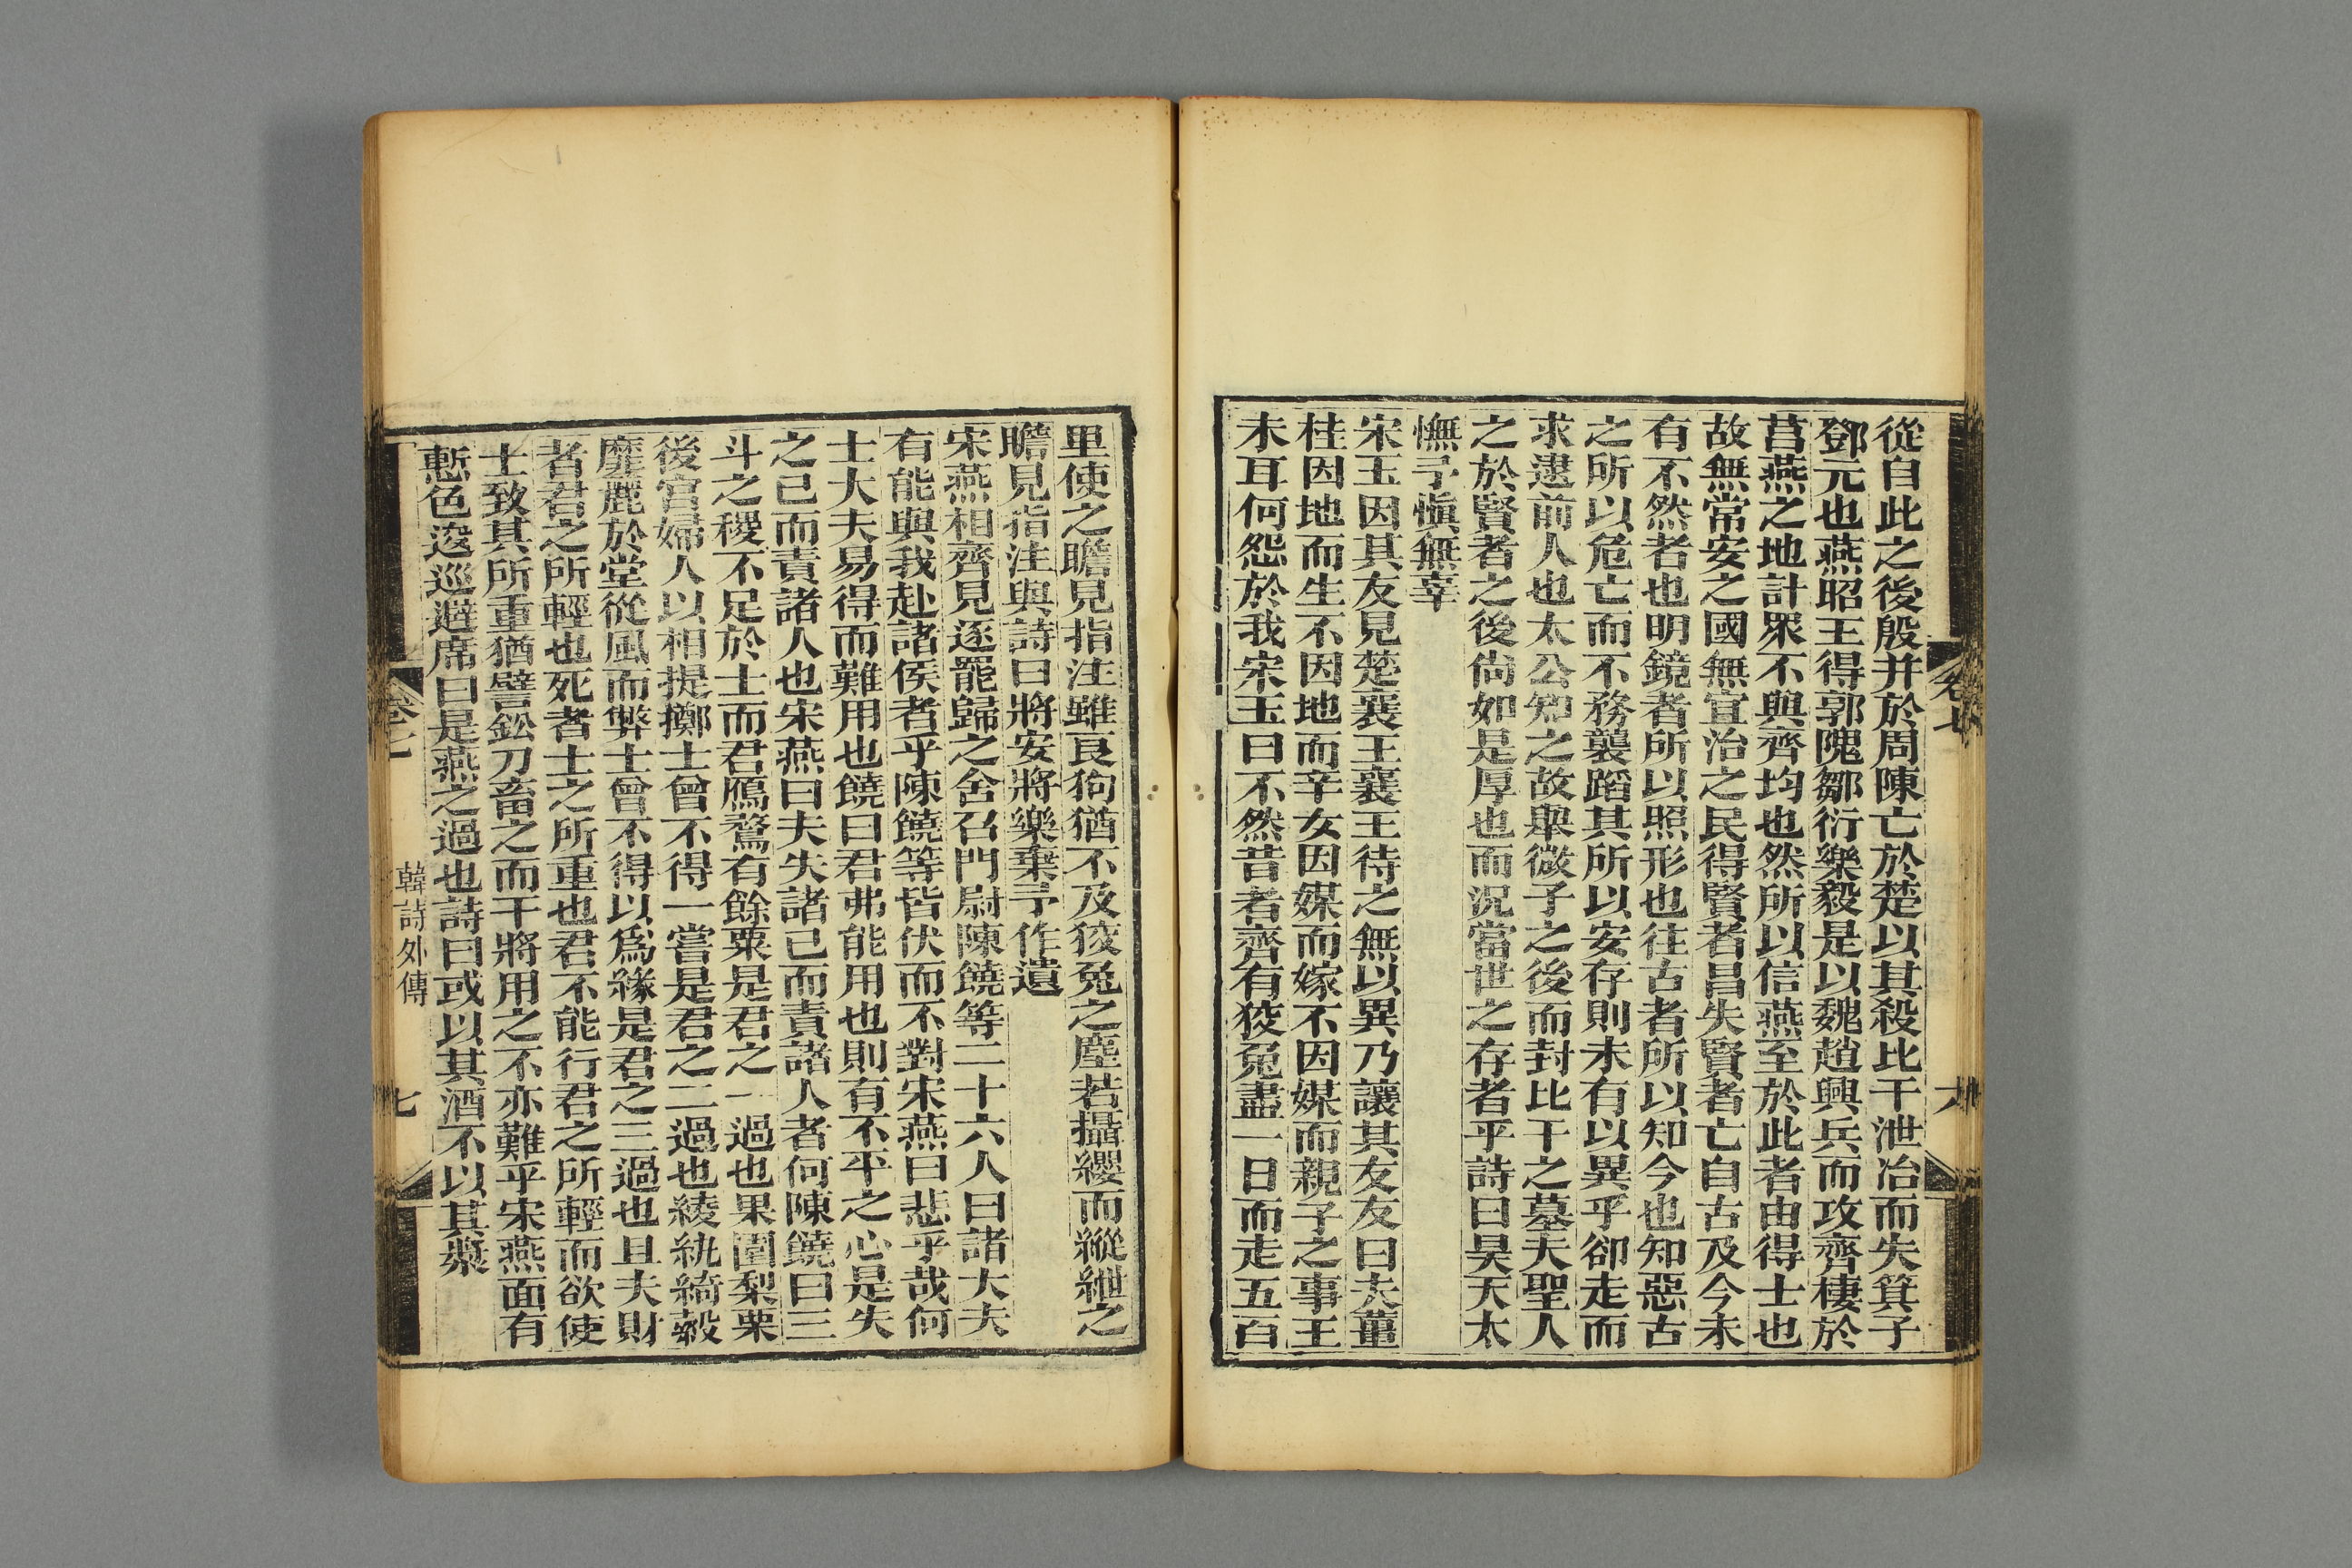 從自此之後殷并於周陳亡於楚以其殺比干泄冶而失箕子
鄧元也燕昭王得郭隗鄒衍樂毅是以魏趙興兵而攻齊棲於
莒燕之地計眾不與齊均也然所以信燕至於此者由得士也
故無常安之國無宜治之民得賢者昌失賢者亡自古及今未
有不然者也明鏡者所以照形也往古者所以知今也知惡古
之所以危亡而不務襲蹈其所以安存則未有以異乎卻走而
求逮前人也太公知之故舉微子之後而封比干之墓夫聖人
之於賢者之後尙如是厚也而況當世之存者乎詩曰昊天太
憮予愼無辜
宋玉因其友見楚襄王襄王待之無以異乃讓其友友曰夫薑
桂因地而生不因地而辛女因媒而嫁不因媒而親子之事王
未耳何怨於我宋玉曰不然昔者齊有狡兔盡一日而走五百
卷七
六
里使之瞻見指注雖良狗猶不及狡兔之塵若攝纓而縱紲之
瞻見指注與詩曰將安將樂棄予作遺
宋燕相齊見逐罷歸之舍召門尉陳饒等二十六人曰諸大夫
有能與我赴諸侯者乎陳饒等皆伏而不對宋燕曰悲乎哉何
士大夫易得而難用也饒曰君弗能用也則有不平之心是失
之己而責諸人也宋燕曰夫失諸己而責諸人者何陳饒曰三
斗之稷不足於士而君鴈鶩有餘粟是君之一過也果園梨栗
後宮婦人以相提擲士曾不得一嘗是君之二過也綾紈綺縠
靡麗於堂從風而弊士曾不得以爲緣是君之三過也且夫財
者君之所輕也死者士之所重也君不能行君之所輕而欲使
士致其所重猶譬鉛刀畜之而干將用之不亦難乎宋燕面有
慙色逡巡避席曰是燕之過也詩曰或以其酒不以其漿
韓詩外傳
七